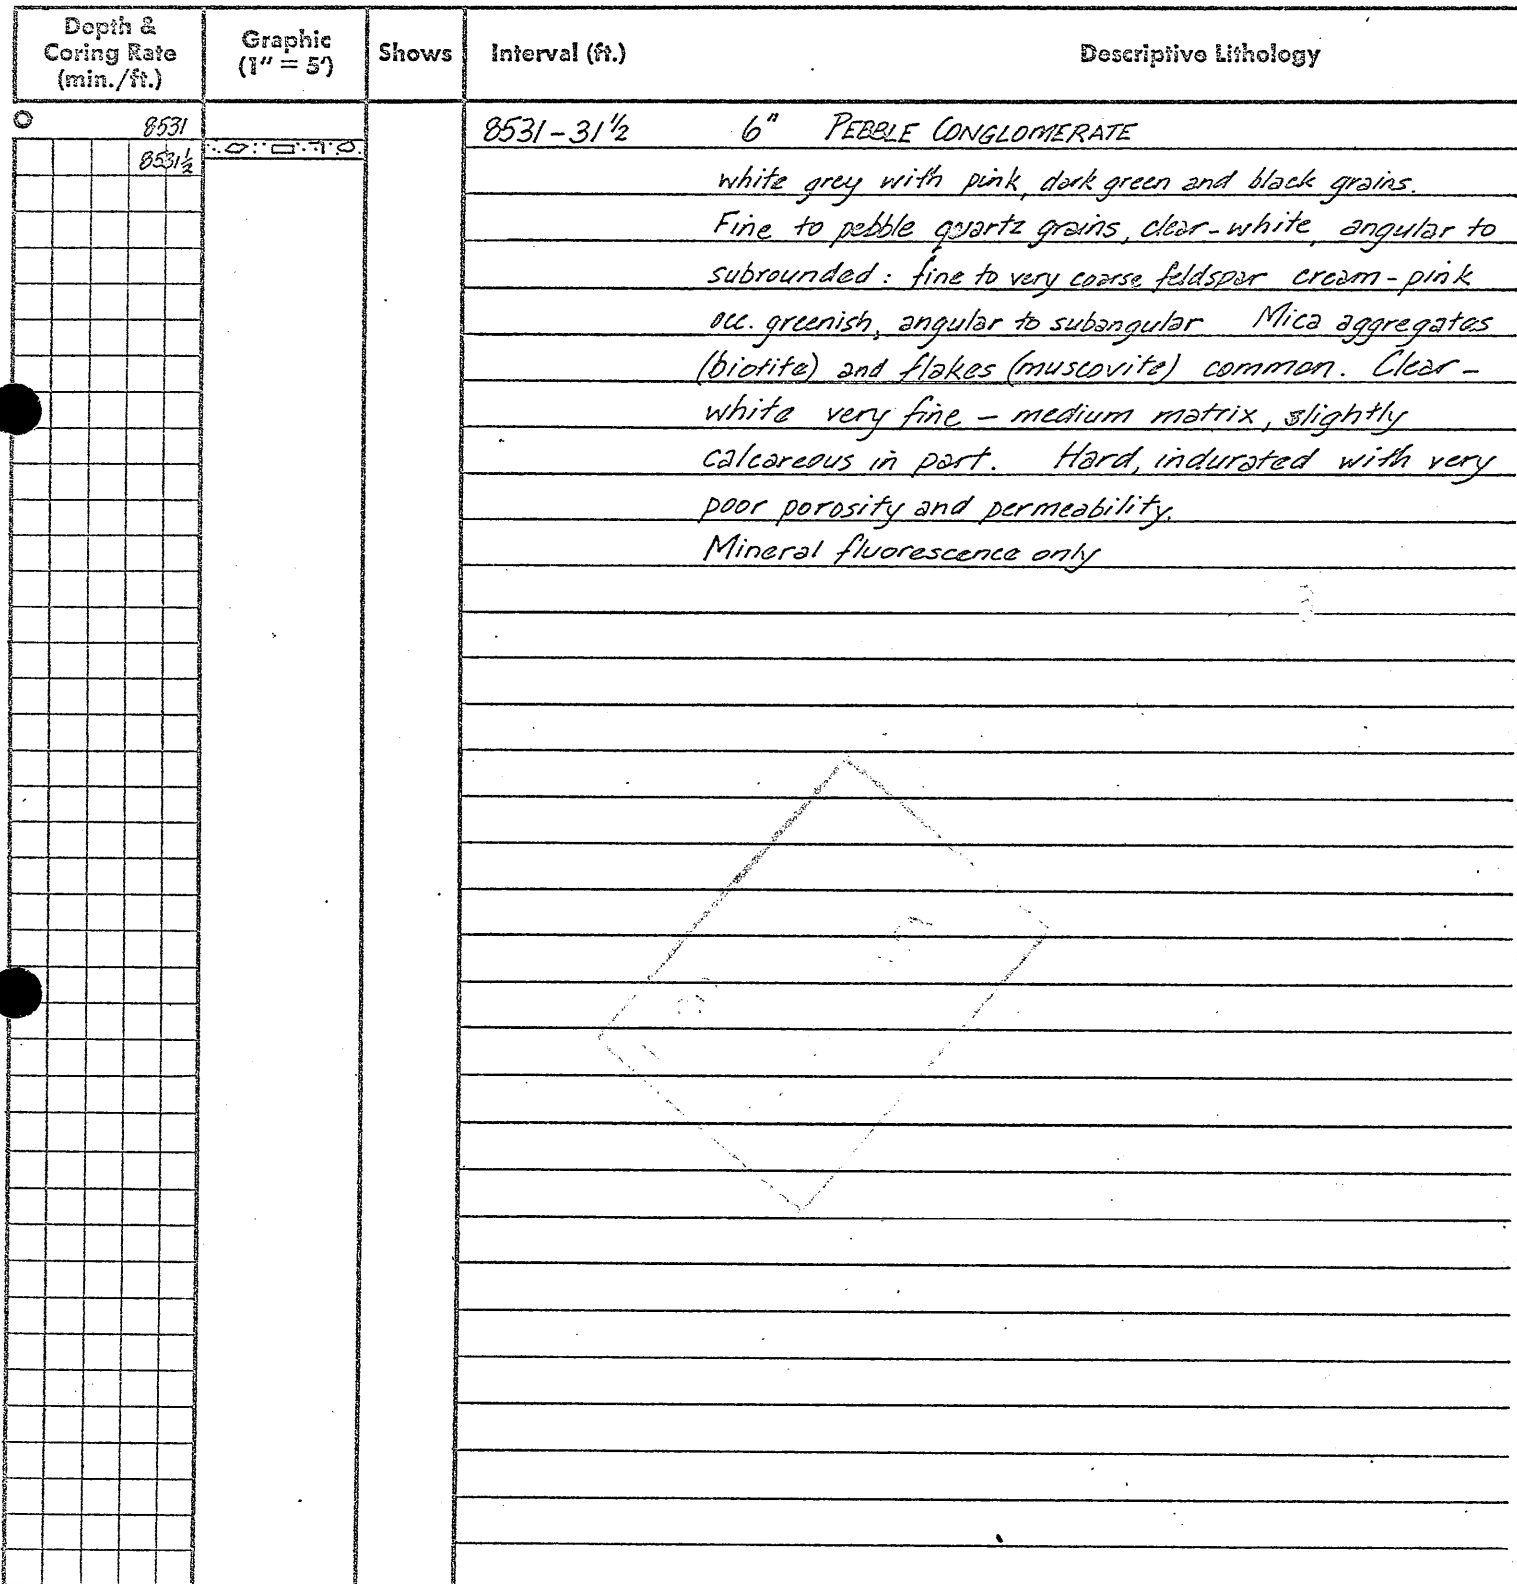 Depth &
Coring Rate
(min./ft.)
Graphic
(1" = 5')
Shows
Interval (ft.)
Descriptive Lithology
8531
8531½
8531-31½ 6" PEBBLE CONGLOMERATE
white grey with pink, dark green and black grains.
Fine to pebble quartz grains, clear-white, angular to
subrounded: fine to very coarse feldspar cream-pink
occ. greenish, angular to subangular Mica aggregates
(biotite) and flakes (muscovite) common. Clear-
white very fine - medium matrix, slightly
calcareous in part. Hard, indurated with very
poor porosity and permeability.
Mineral fluorescence only